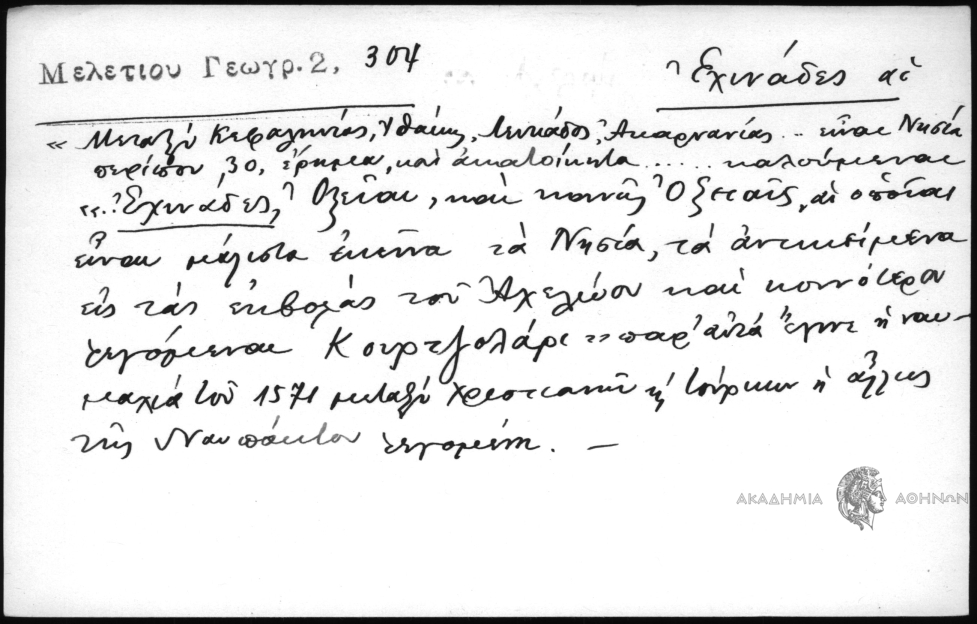 Μελετίου Γεωγρ. 2, 304
Ἐχινάδες αἱ
« Μεταξὺ Κεφαλληνίας, Ἰθάκης, Λευκάδος, Ἀκαρνανίας .. εἶναι Νησία
περίπου 30, ἔρημα, καὶ ἀκατοίκητα ..... καλούμεναι
«.. Ἐχινάδες, Ὀξεῖαι, καὶ κοινῶς Ὀξειαῖς, αἱ ὁποῖαι
εἶναι μάλιστα ἐκεῖνα τὰ Νησία, τὰ ἀντικείμενα
εἰς τὰς ἐκβολὰς τοῦ Ἀχελώου καὶ κοινότερον
λεγόμεναι Κουρτζολάρι » παρ' αὐτὰ ἔγινε ἡ ναυ-
μαχία τοῦ 1571 μεταξὺ Χριστιανῶν κ Τούρκων ἡ ἄλλως
τῆς Ναυπάκτου λεγομένη. —
ΑΚΑΔΗΜΙΑ ΑΘΗΝΩΝ